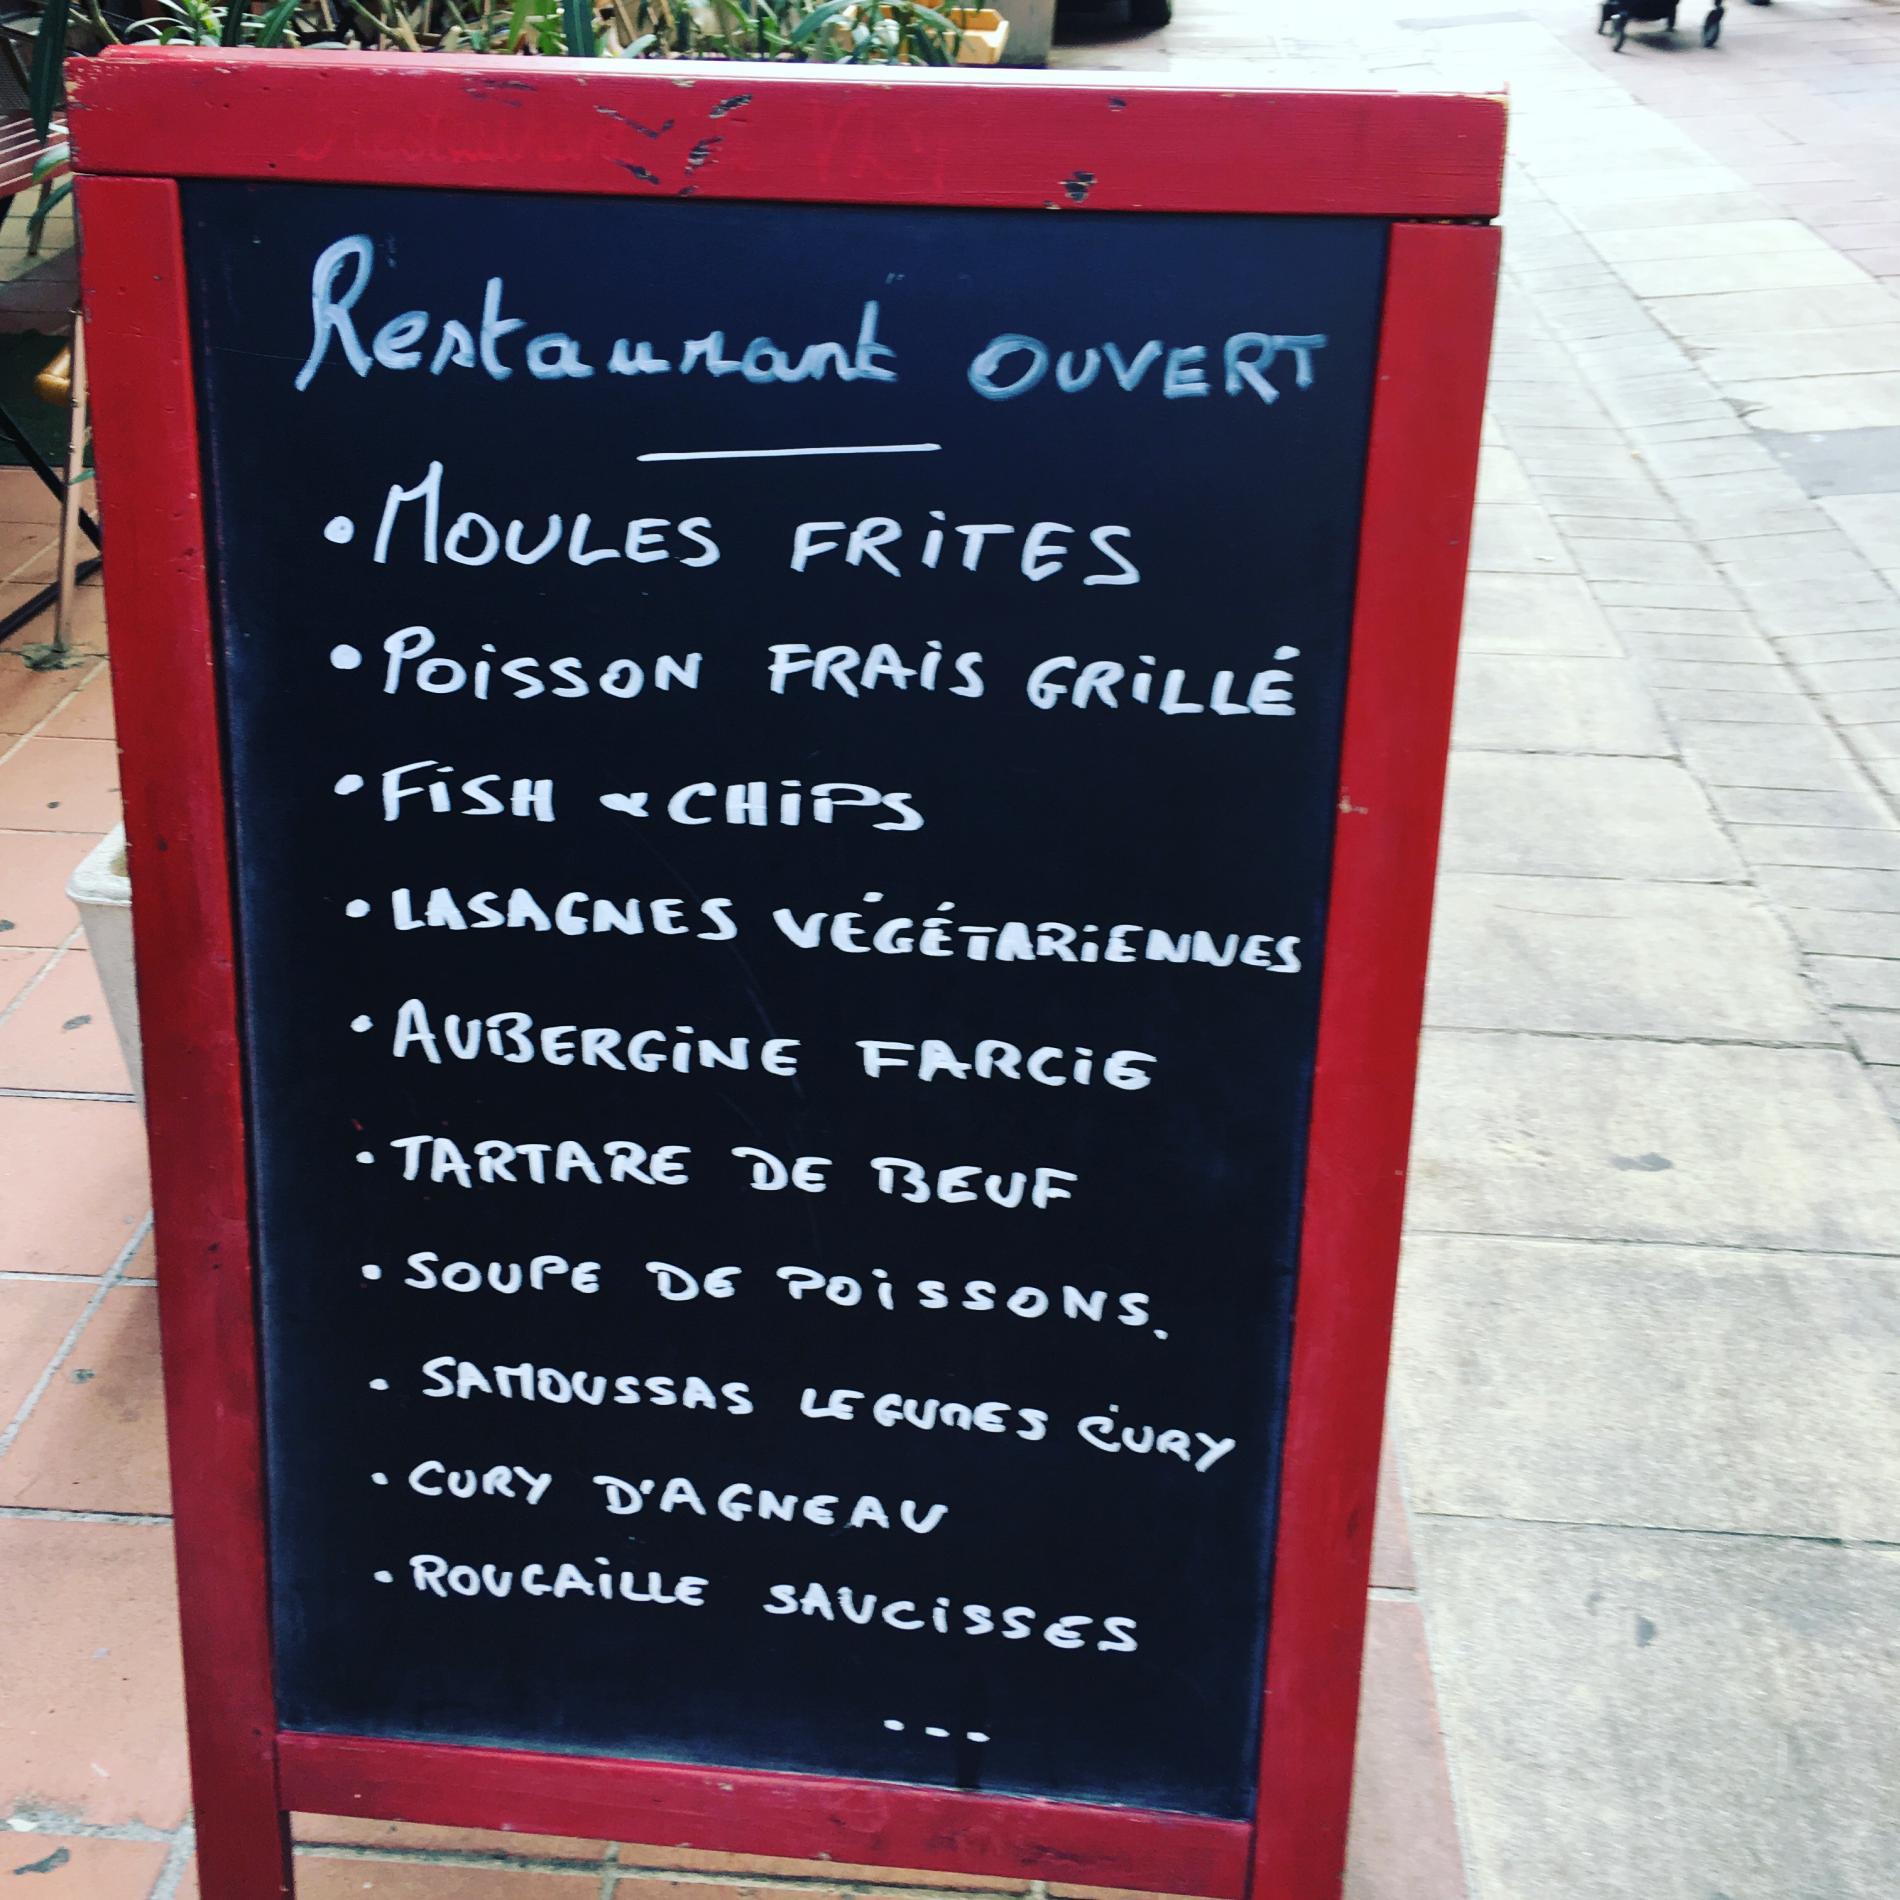 Restaurant OUVERT
• MOULES FRITES
• POISSON FRAIS GRILLÉ
• FISH & CHIPS
• LASAGNES VÉGÉTARIENNES
• AUBERGINE FARCIE
• TARTARE DE BEUF
• SOUPE DE POISSONS.
• SAMOUSSAS LEGUMES CURY
• CURY D'AGNEAU
• ROUGAILLE SAUCISSES
...